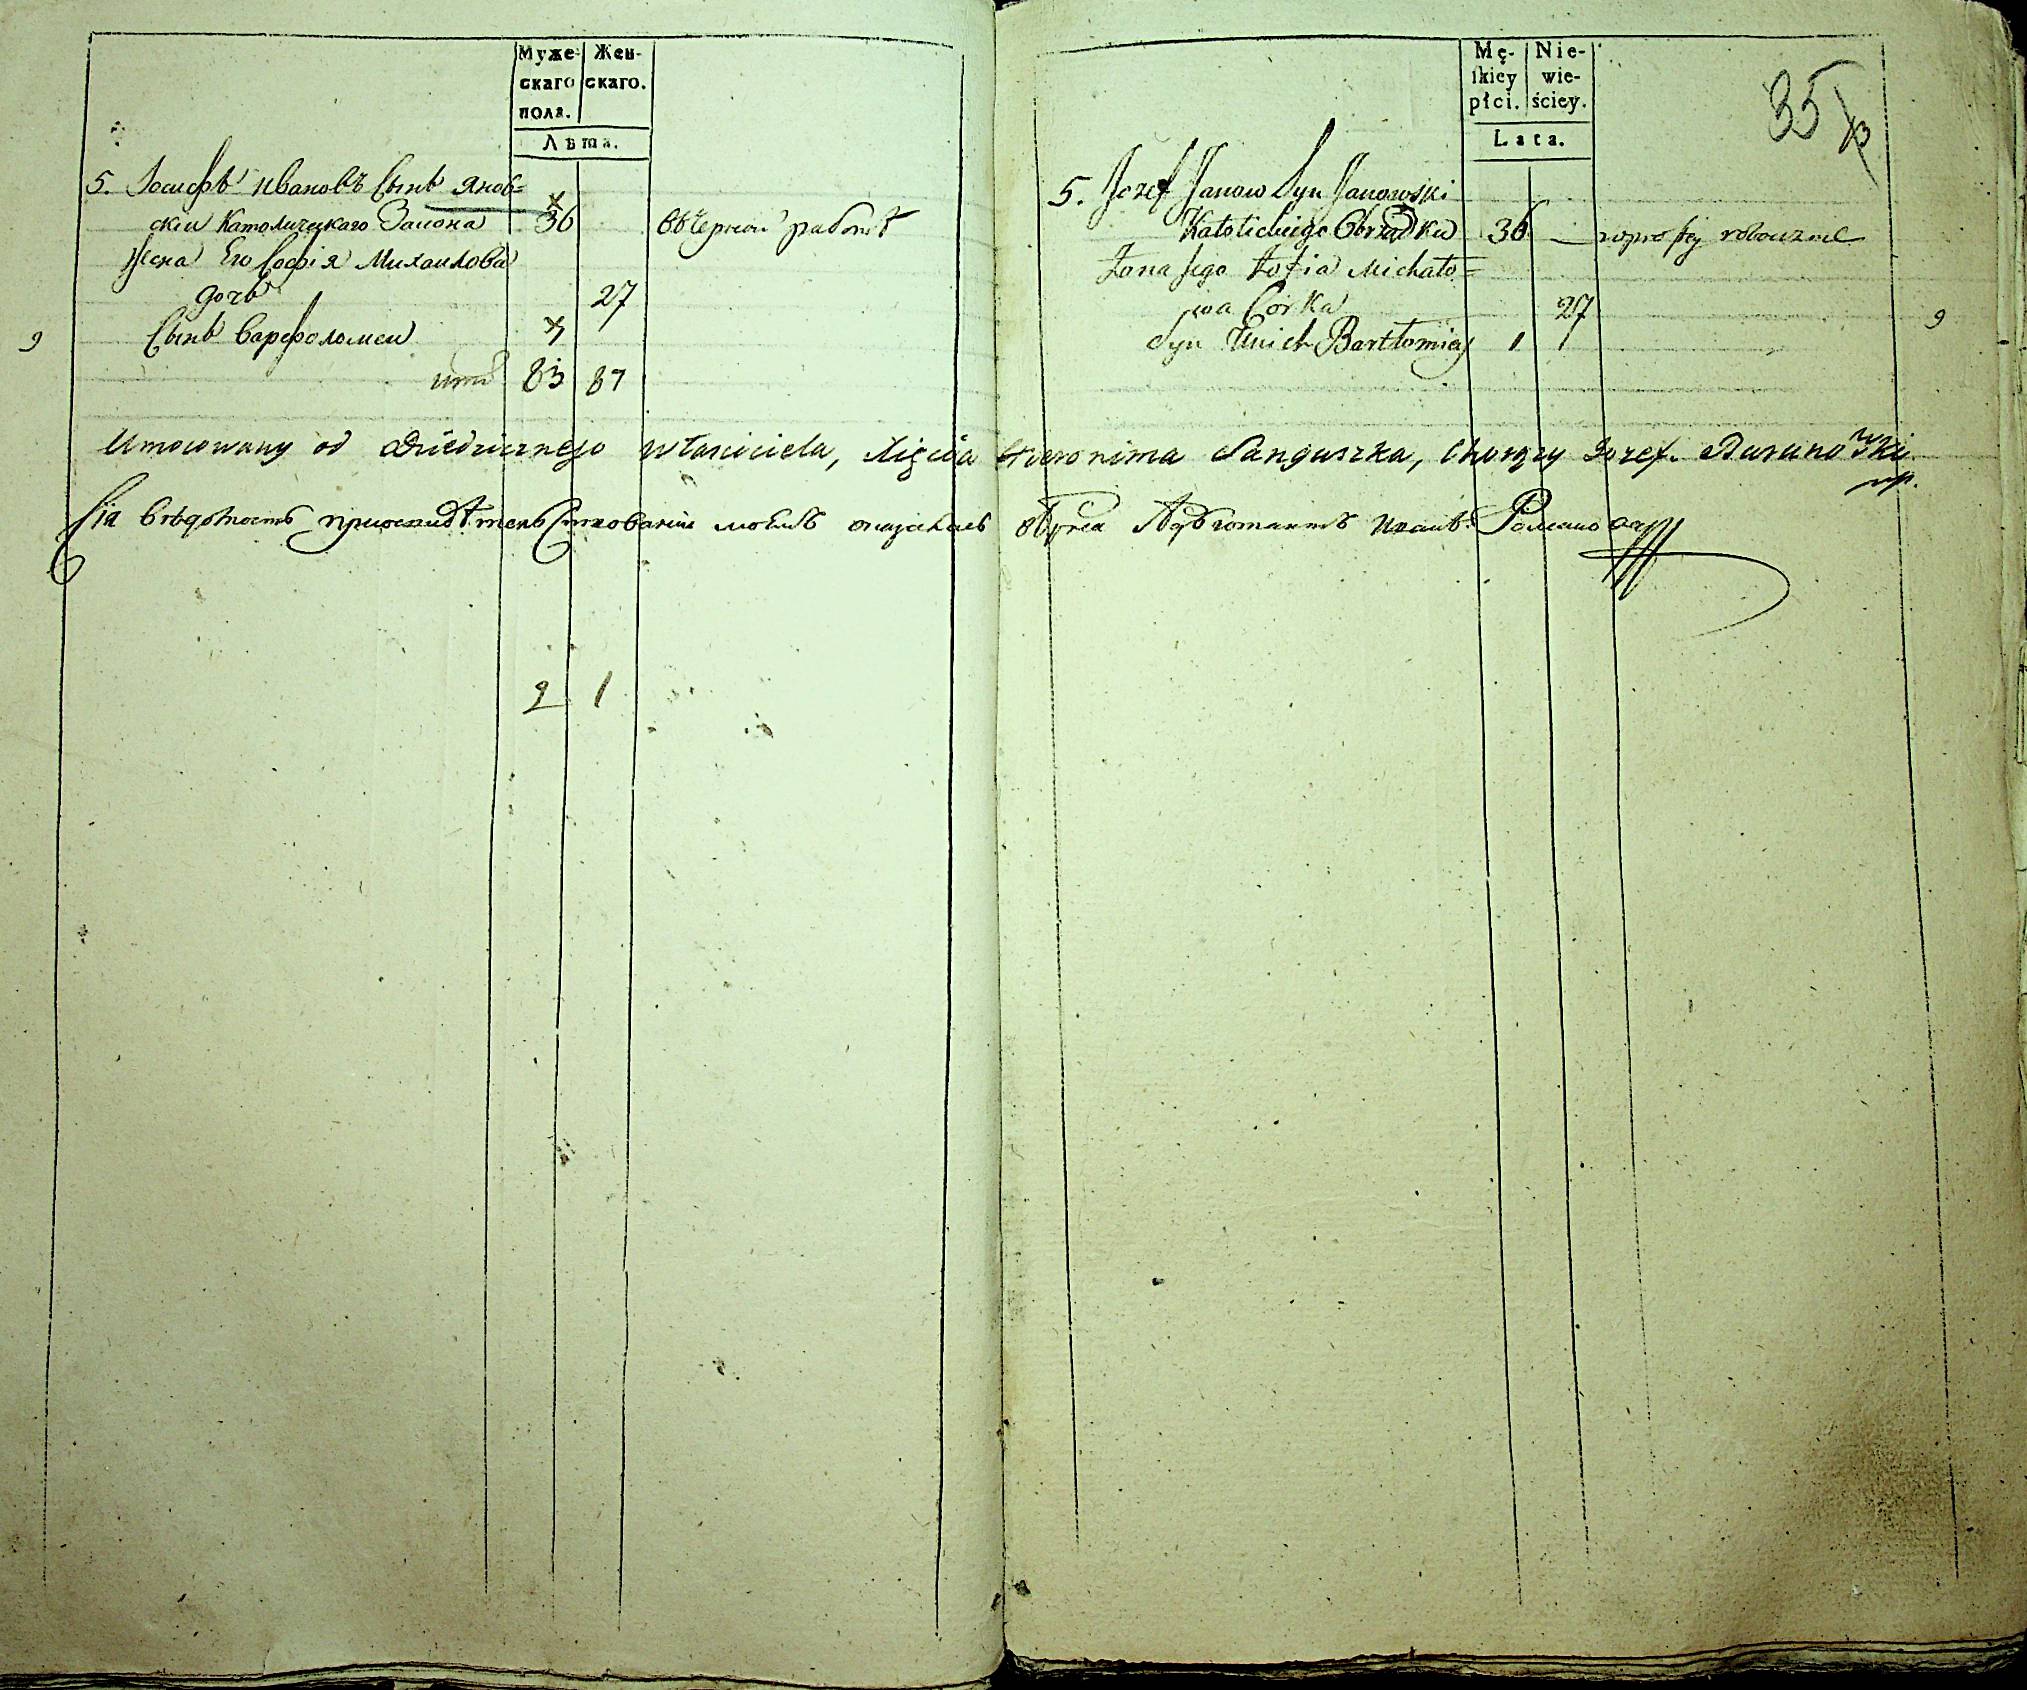 Муже-
скаго
пола.
Жен-
скаго.
Лѣта.
5. Іосифъ Ивановъ Сынъ Янов=
скіи Католицкаго Закона 36 въ Черной работѣ
Жена Его Софія Михаилова
дочь 27
Сынъ Варфоломеи 1
9
83 87
2 1
Mę-
skiey
płci.
Nie-
wie-
ściey.
Lata.
35
5. Jozef Janow Syn Janowski
Katolickiego Obrządku 36 w prostey robociznie
Żona Jego Zofia Michało=
wa Corka 27
Syn Ɨch Bartłomiey 1
9
Umocowany od Dziedzicznego Własciciela, Xięcia Hieronima Sanguszka, Chorąży Jozef
Сія вѣдомость